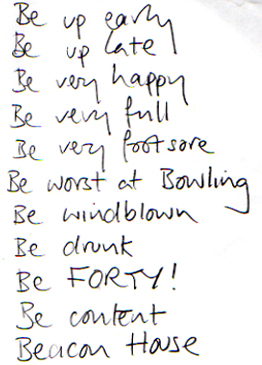 Be up early
Be up late
Be very happy
Be very full
Be very footsore
Be worst at Bowling
Be windblown
Be drunk
Be FORTY!
Be content
Beacon House